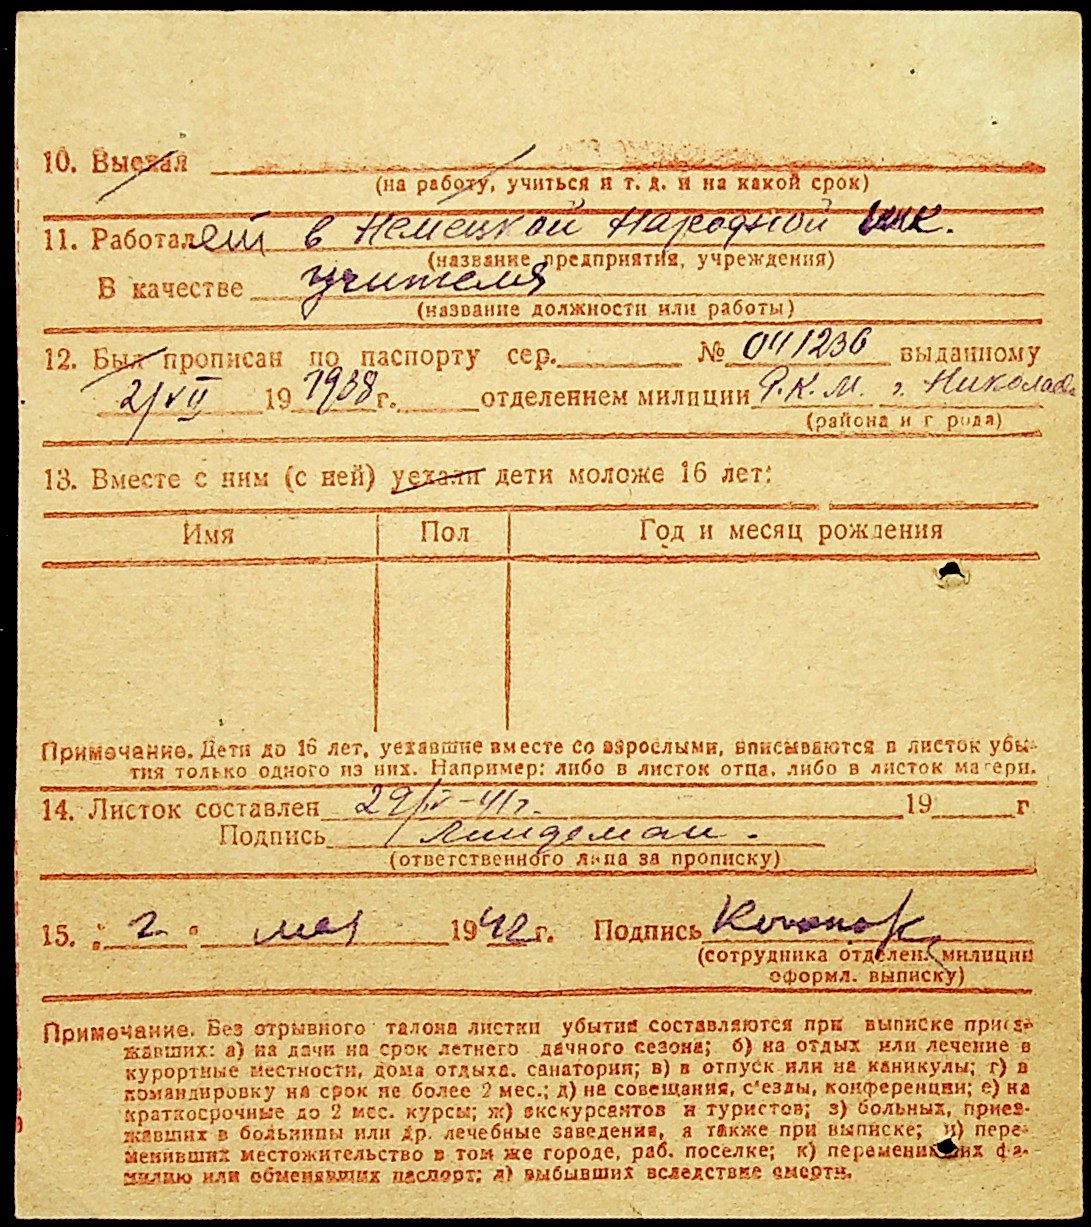 10. Выехал
(на работу, учиться и т. д. и на какой срок)
11. Работал в Немецкой Народной шк.
(название предприятия, учреждения)
В качестве учителя
(название должности или работы)
12. Был прописан по паспорту сер. № 041236 выданному
2/VII 19 1938 г. отделением милиции Р.К.М. г. Николаев
(района и г рода)
13. Вместе с ним (с ней) уехали дети моложе 16 лет:
Имя Пол Год и месяц рождения
Примечание. Дети до 16 лет, уехавшие вместе со взрослыми, вписываются в листок убы-
тия только одного из них. Например: либо в листок отца, либо в листок матери.
14. Листок составлен 29/IV-41г. 19 г
Подпись Линдеман.
(ответственного лица за прописку)
15. " 2 " мая 1942 г. Подпись
(сотрудника отделен. милиции
оформл. выписку)
Примечание. Без отрывного талона листки убытия составляются при выписке приез-
жавших: а) на дачи на срок летнего дачного сезона; б) на отдых или лечение в
курортные местности, дома отдыха, санатории; в) в отпуск или на каникулы; г) в
командировку на срок не более 2 мес.; д) на совещания, с'езды, конференции; е) на
краткосрочные до 2 мес. курсы; ж) экскурсантов и туристов; з) больных, приез-
жавших в больницы или др. лечебные заведения, а также при выписке; и) пере-
менивших местожительство в том же городе, раб. поселке; к) переменивших фа-
милию или обменявших паспорт; л) выбывших вследствие смерти.